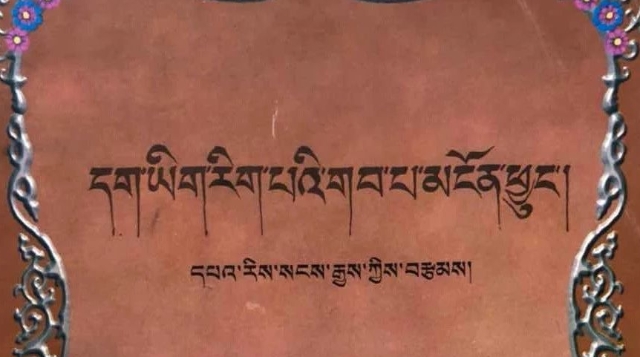 དག་ཡིག་རིག་པའི་གབ་པ་མངོན་ཕྱུང༌།
དཔའ་རིས་སངས་རྒྱས་ཀྱིས་བརྩམས།